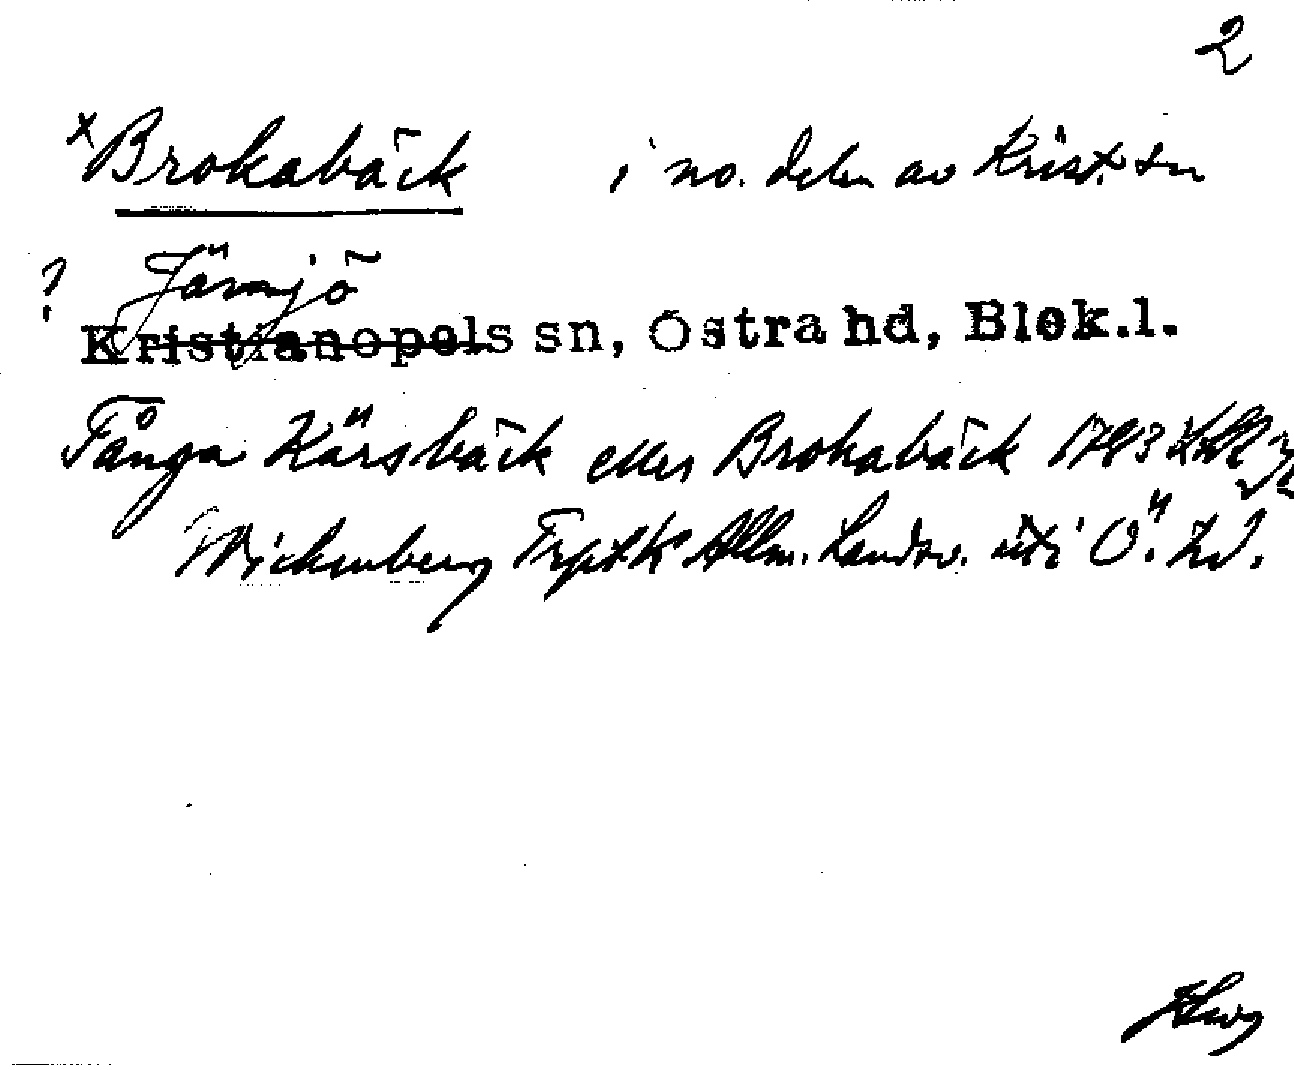 2
x Brokabäck i no. delen av Krist. sn
? Jämjö
Kristianopels sn, Östra hd, Blek.l.
Tånga Kärsbäck eller Brokabäck 1783
Wickenberg Allm. Landsv. uti Ö. hd.